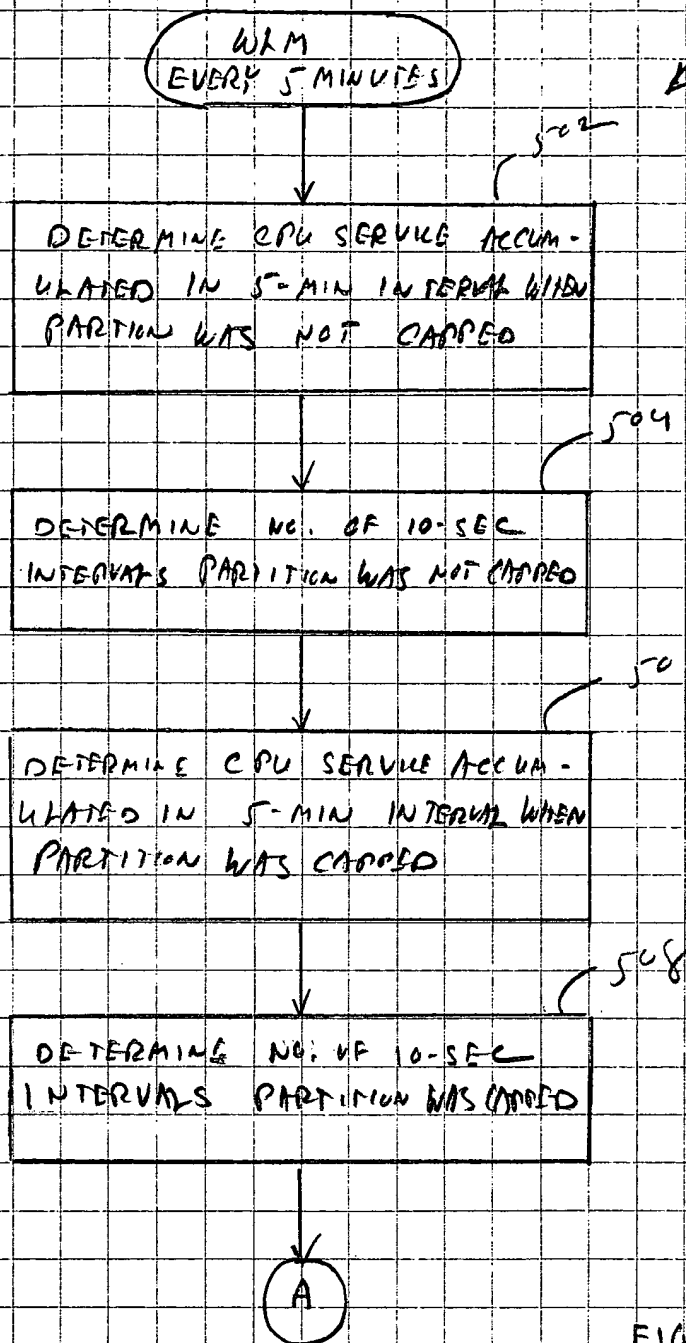 WLM
EVERY 5 MINUTES
502
DETERMINE CPU SERVICE ACCUM-
ULATED IN 5-MIN INTERVAL WHEN
PARTION WAS NOT CAPPED
504
DETERMINE NO. OF 10-SEC
INTERVALS PARTITION WAS NOT CAPPED
50
DETERMINE CPU SERVICE ACCUM-
ULATED IN 5-MIN INTERVAL WHEN
PARTITION WAS CAPPED
508
DETERMINE NO. OF 10-SEC
INTERVALS PARTITION WAS CAPPED
A
FIG